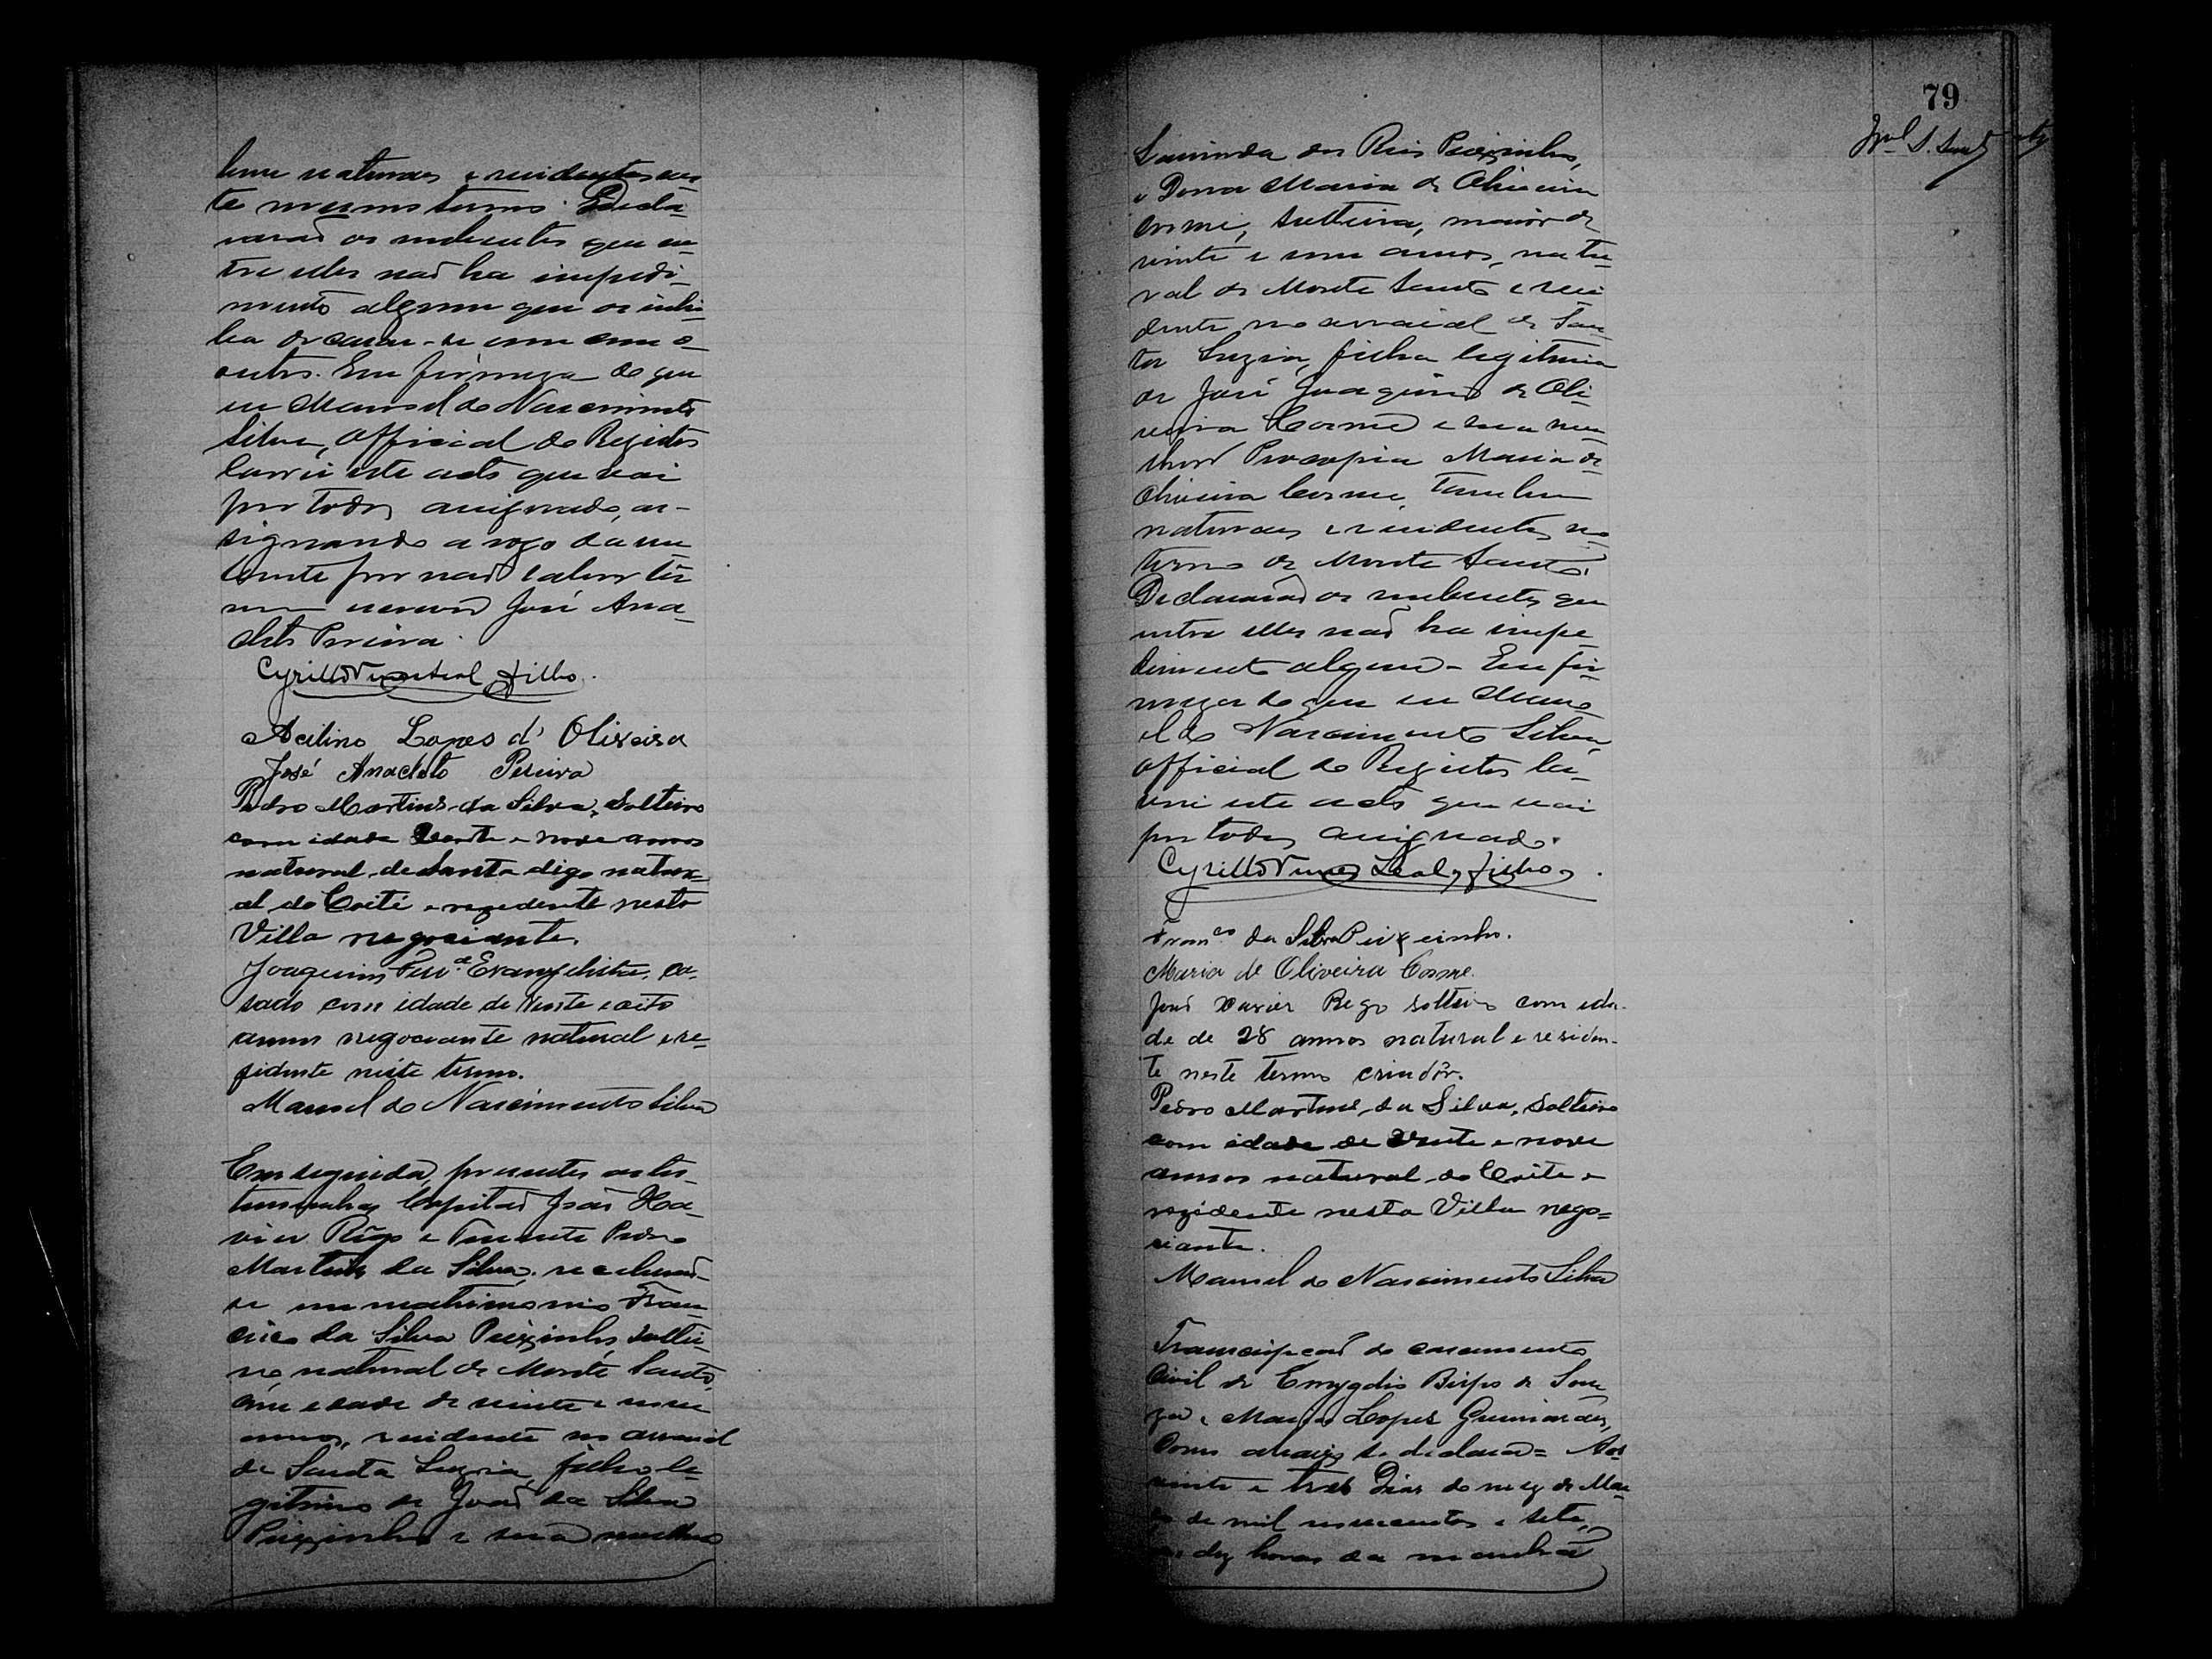 bem naturaes e residentes nes-
te mesmo termo. Decla-
rarão os nubentes que en-
tre elles não ha impedi-
mento algum que os inhi-
ba de casar-se um com o
outro. Em firmeza do que
eu Manoel do Nascimento
Silva, Official do Registro
lavrei este acto que vai
por todos assignado, as-
signando a rogo da nu
bente por não saber ler
nem escrever José Ana-
cleto Pereira.
Cyrillo Nunes Leal Filho.
Acilino Lopes d' Oliveira
José Anacleto Pereira
Pedro Martins da Silva, Solteiro
com idade Vente e nove annos
natural de Santa digo natur-
al do Coité e rezedente nesta
Villa negociante.
Joaquim Perª Evangelista, ca-
sado com idade de Vente e oito
annos negociante natural e re-
sidente neste termo.
Manoel do Nascimento Silva
Em seguida, presentes as tes-
temunhas Capitão João Xa-
vier Rêgo e Tenente Pedro
Martins da Silva, receberão-
se em matrimonio Fran-
cisco da Silva Peixinho, soltei-
ro, natural de Monte Santo,
com edade de vinte e um
annos, residente no arraial
de Santa Luzia, filho le-
gitimo de João da Silva
Peixinho e sua mulher
79
dos Reis Peixinho,
e Dona Maria de Oliveira
Cosme, solteira, maior de
vinte e um annos, natu-
ral de Monte Santo e resi
dente no arraial de San
ta Luzia, filha legitima
de José Joaquim de Oli-
veira Cosme e sua mu
lher Procopia Maria de
Oliveira Cosme, tambem
naturaes e residentes no
termo de Monte Santo.
Declararão os nubentes que
entre elles não ha impe
dimento algum. Em fir-
meza do que eu Mano
el do Nascimento Silva,
Official do Registro la-
vrei este acto que vai
por todos assignado.
Cyrillo Nunes Leal Filho.
Francº da Silva Peixeinho.
Maria de Oliveira Cosme.
João Xavier Rego solteiro com ida-
de de 28 annos natural e residen-
te neste termo criadôr.
Pedro Martins da Silva, Solteiro
com idade de Vente e nove
annos natural do Coite e
rezidente nesta Villa nego=
ciante.
Manoel do Nascimento Silva
Transcripção do casamento
Civil de Emygdio Bispo de Sou
za e Maria Lopes Guimarães,
como abaixo se declara= Aos
vinte e tres Dias do mez de Mar
ço de mil novecentos e sete,
as dez horas da manhã